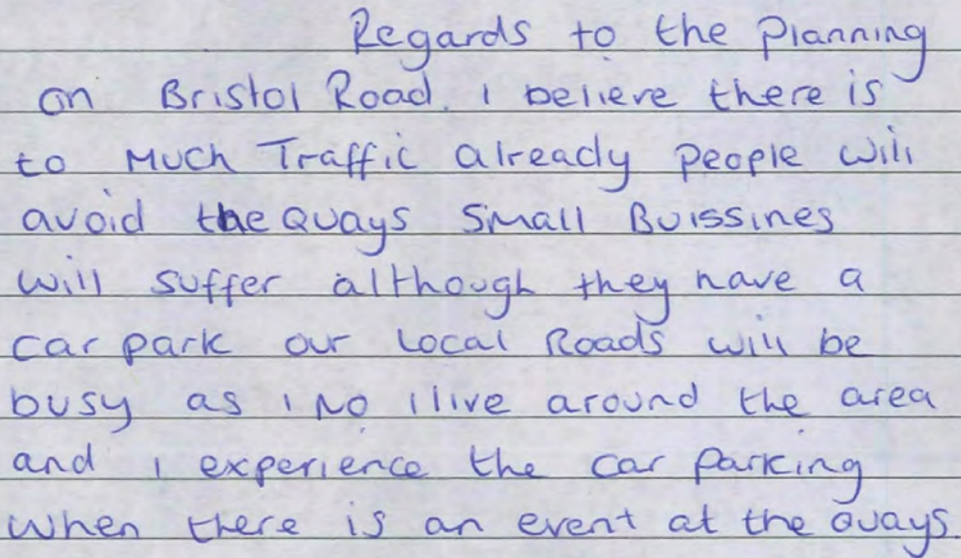 Regards to the Planning
on Bristol Road. I believe there is
to Much Traffic already People will
avoid the Quays Small Buissines
will suffer although they have a
car park our Local Roads will be
busy as I No I live around the area
and I experience the car parking
when there is an event at the Quays.